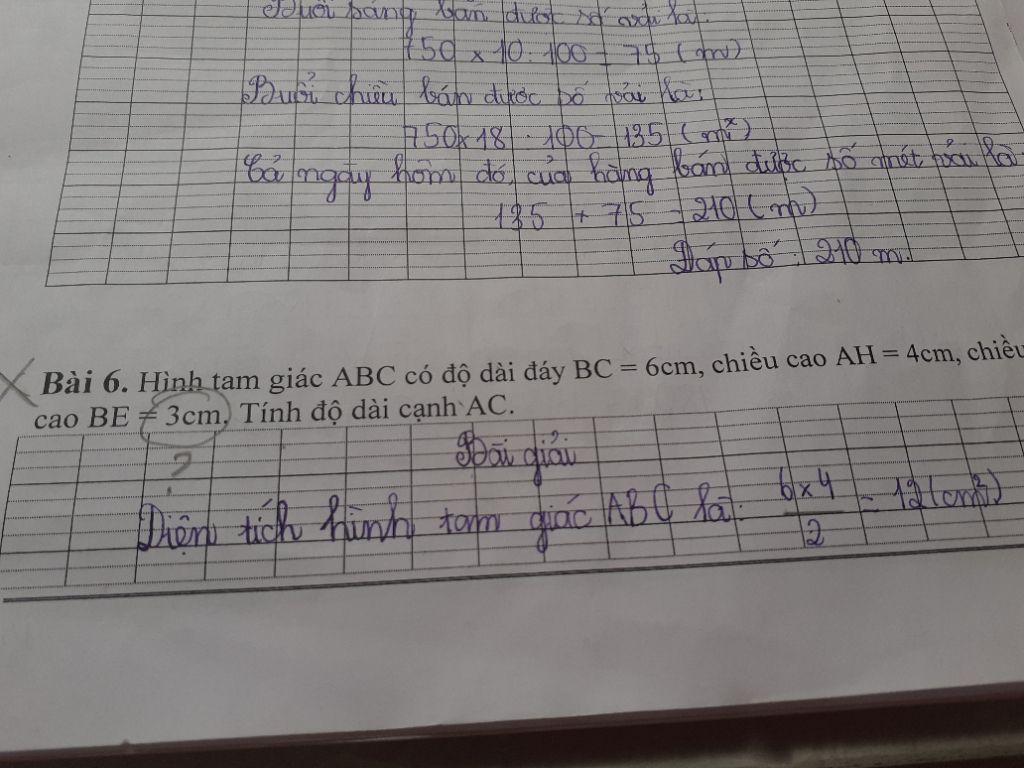 Buổi sáng bán được số vải là:
750 x 10 : 100 = 75 (m)
Buổi chiều bán được số vải là:
750 x 18 : 100 = 135 (m)
Cả ngày hôm đó, cửa hàng bán được số mét vải là:
135 + 75 = 210 (m)
Đáp số : 210 m.
Bài 6. Hình tam giác ABC có độ dài đáy BC = 6cm, chiều cao AH = 4cm, chiều
cao BE = 3cm, Tính độ dài cạnh AC.
?
Bài giải
Diện tích hình tam giác ABC là: 6 x 4 / 2 = 12 (cm²)